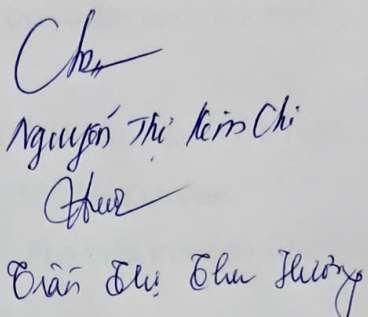 Nguyễn Thị Kim Chi
Trần Thị Thu Hương